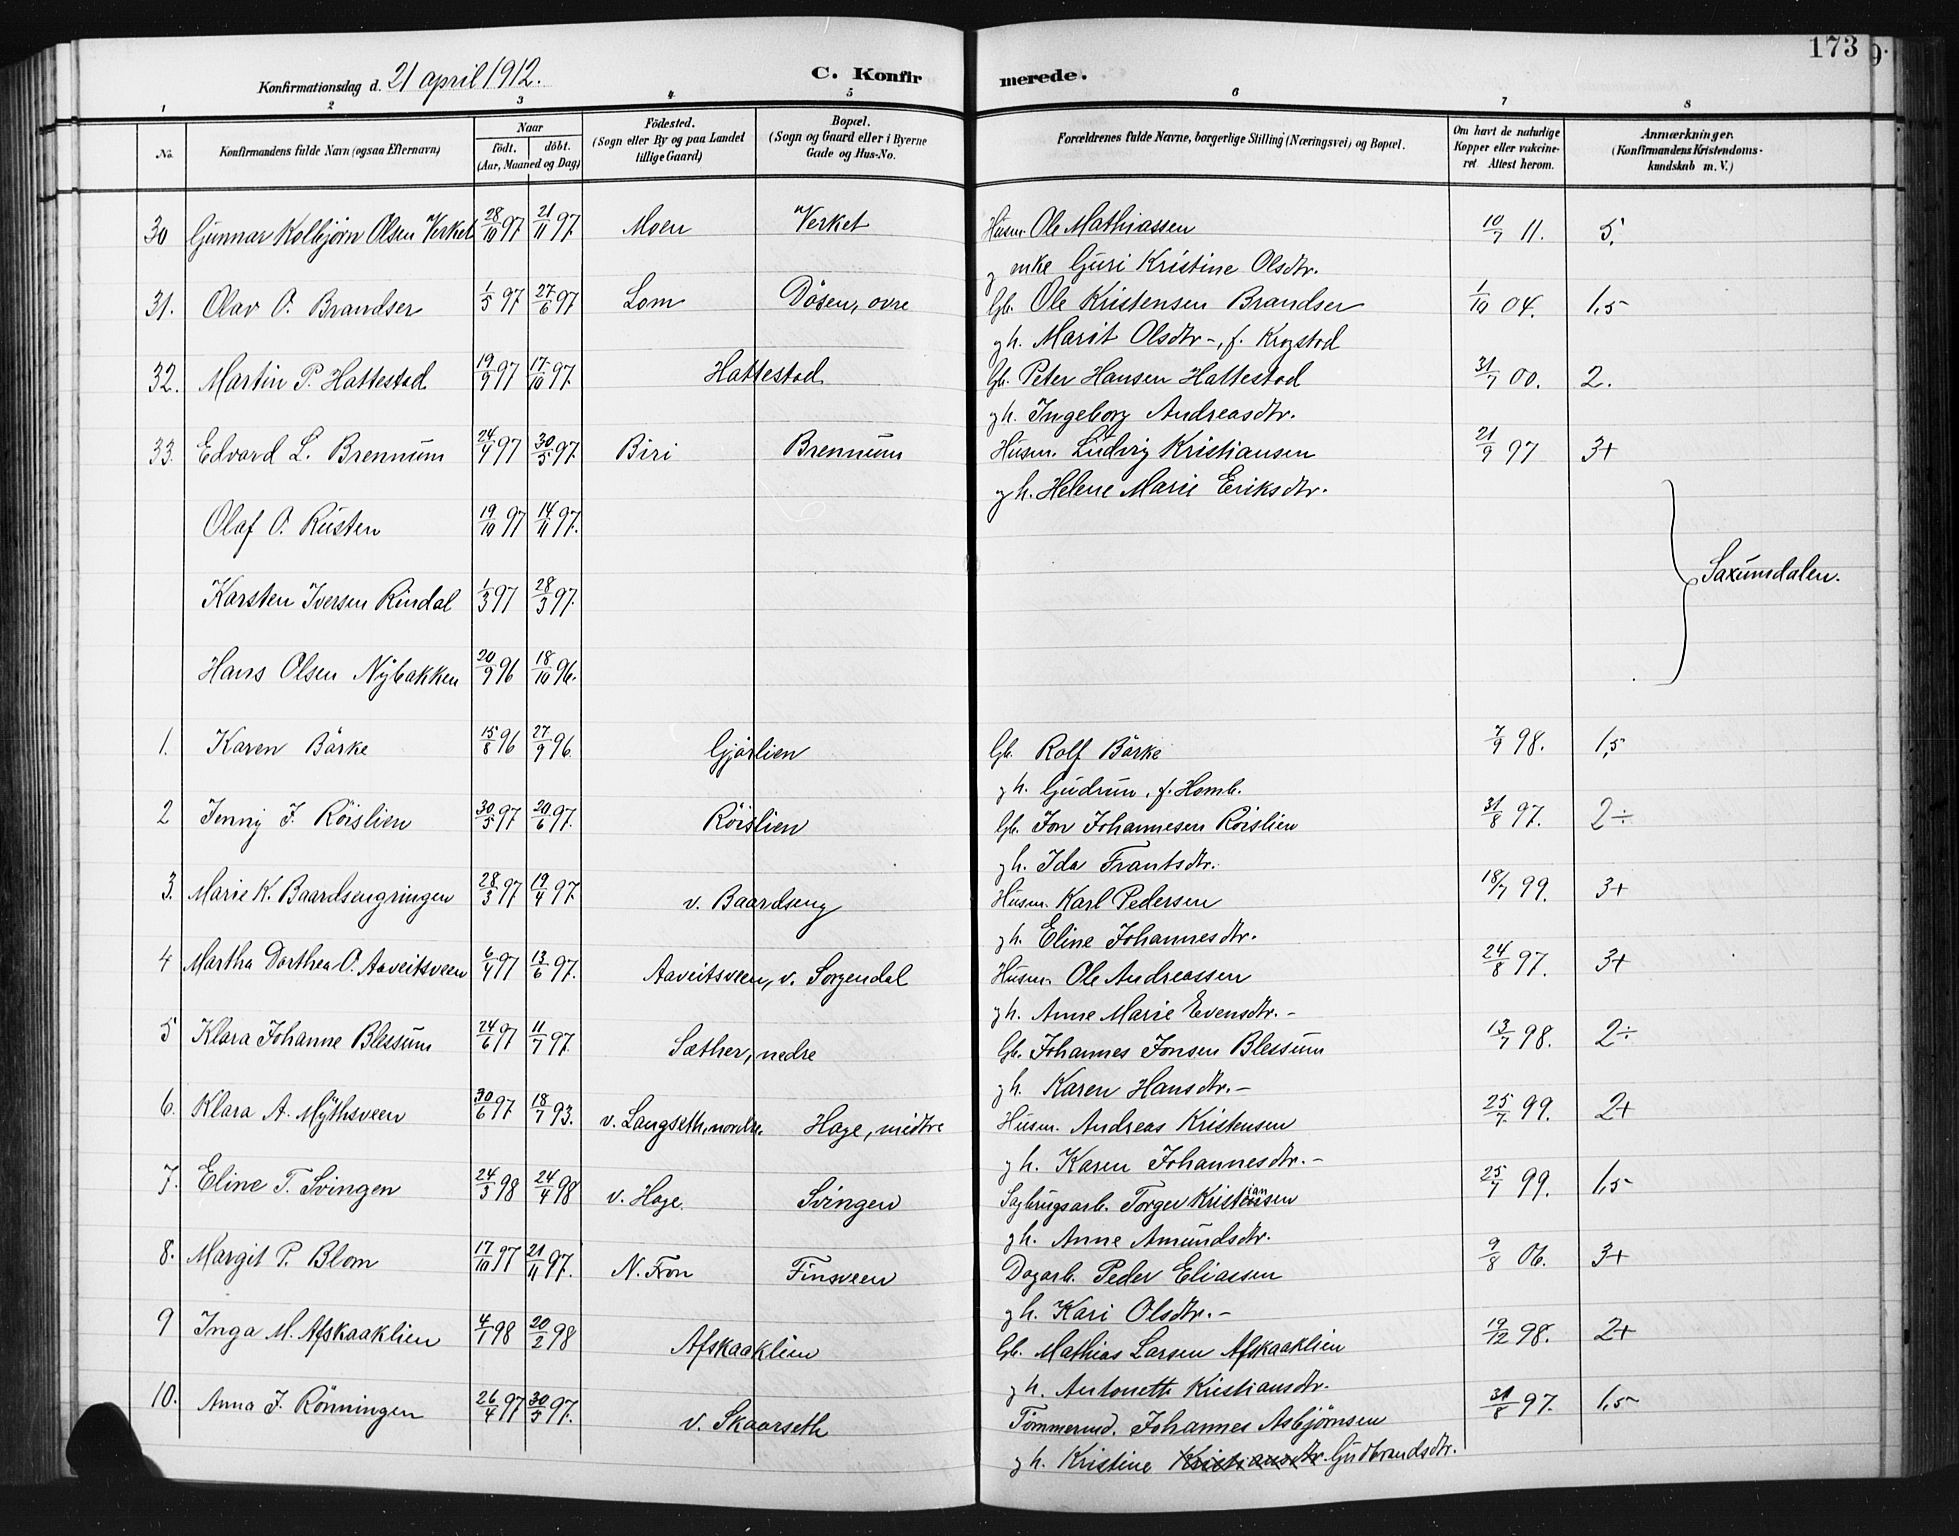 173
Konfirmationsdag d. 21 april 1912.
C. Konfirmerede.
1 2 3 4 5 6 7 8
No.
Konfirmandens fulde Navn (ogsaa Efternavn)
Naar
født. døbt.
(Aar, Maaned og Dag)
Fødested.
(Sogn eller By og paa Landet
tillige Gaard)
Bopæl.
(Sogn og Gaard eller i Byerne
Gade og Hus-No.
Forældrenes fulde Navne, borgerlige Stilling (Næringsvei) og Bopæl.
Om havt de naturlige
Kopper eller vakcine-
ret Attest herom.
Anmærkninger.
(Konfirmandens Kristendoms-
kundskab m. V.)
30 Gunnar Kolbjørn Olsen Verket 28/10 97 21/11 97. Moen Verket Husm. Ole Mathiassen 10/7 11. 5.
og enke Guri Kristine Olsdtr.
31. Olav O. Brandser 1/5 97 27/6 97 Lom Døsen, øvre Gb. Ole Kristensen Brandser 1/10 04. 1,5
og h. Marit Olsdtr-, f. Krogstad
32. Martin P. Hattestad 19/9 97 17/10 97. Hattestad Gb. Peter Hansen Hattestad 31/7 00. 2.
og h. Ingeborg Andreasdtr.
33. Edvard L. Brennum 24/4 97 30/5 97. Biri Brennum Husm. Ludvig Kristiansen 21/9 97 3+
og h. Helene Marie Eriksdtr.
Olaf O. Rusten 19/10 97 14/11 97.
Karsten Iversen Rindal 1/3 97 28/3 97. Saxumdalen.
Hans Olsen Nybakken 20/9 96 18/10 96.
1. Karen Bårke 15/8 96 27/9 96. Gjørlien Gb. Rolf Bårke 7/9 98. 1,5
og h. Gudrun, f. Homb.
2 Jenny J. Röislien 30/5 97 20/6 97. Röislien Gb. Jon Johannesen Röislien 31/8 97. 2÷
og h. Ida Frantsdtr.
3. Marie K. Baardsengringen 28/3 97 19/4 97. v. Baardseng Husm. Karl Pedersen 18/7 99. 3+
og h. Eline Johannesdtr.
4 Martha Dorthea O. Aaveitsveen 6/4 97 13/6 97. Aaveitsveen, v. Sorgendal Husm. Ole Andreassen 24/8 97. 3+
og h. Anne Marie Evensdtr.-
5 Klara Johanne Blessum 24/6 97 11/7 97. Sæther, nedre Gb. Johannes Jonsen Blessum 13/7 98. 2÷
og h. Karen Hansdtr.-
6. Klara A. Mythsveen 30/6 97 18/7 93. v. Langseth, nordre. Hage, midtre Husm. Andreas Kristensen 25/7 99. 2+
og h. Karen Johannesdtr.-
7. Eline T. Svingen 24/3 98 24/4 98 v. Hage. Svingen Sagbrugsarb. Torger Kristiansen 25/7 99. 1,5
og h. Anne Amundsdtr.
8. Margit P. Blom 17/10 97 21/11 97. N. Fron Finsveen Dagarb. Peder Eliassen 9/8 06. 3+
og h. Kari Olsdtr.-
9 Inga M. Afskaaklien 4/1 98 20/2 98 Afskaaklien Gb. Mathias Larsen Afskaaklien 19/12 98. 2+
og h. Antonette Kristiansdtr.
10. Anna J. Rönningen 26/4 97 30/5 97. v. Skaarseth Tömmermd. Johannes Asbjørnsen 31/8 97. 1,5
og h. Kristine Kristiansdtr. Gudbrandsdtr.